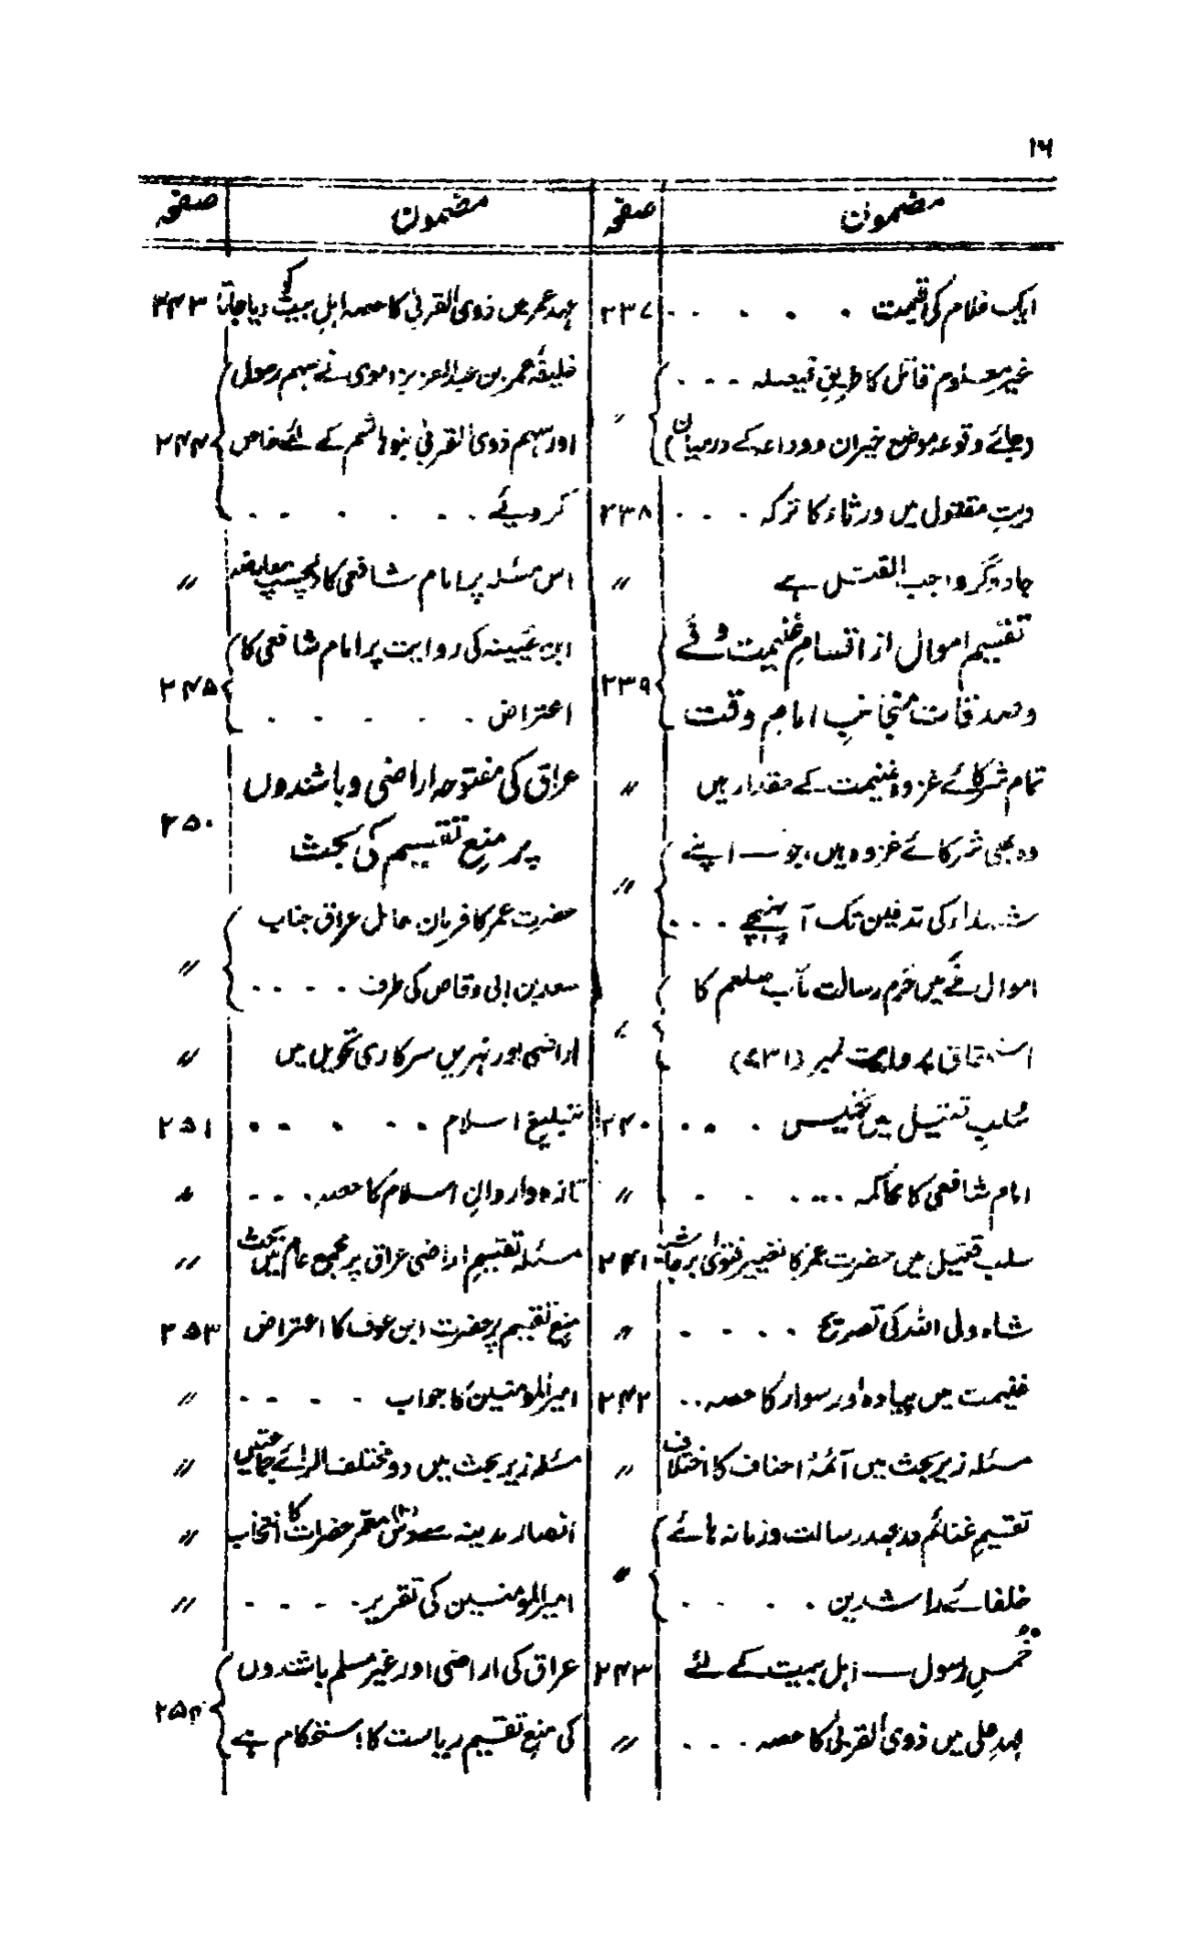 ۱۶
مضمون صفحہ
ایک غلام کی قیمت . . . . . ۲۳۷
غیر معلوم قاتل کا طریق فیصلہ . . .
(بجائے وقوعہ موضع خیران و وداعہ کے درمیان) ״
دیت مقتول میں ورثاء کا ترکہ . . . ۲۳۸
جادوگر واجب القتل ہے ״
تقسیم اموال از اقسامِ غنیمت و فَے
وصدقات منجانبِ امامِ وقت ۲۳۹
تمام شرکائے غزوہ غنیمت کے حقدار ہیں ״
وہ بھی شرکائے غزوہ ہیں، جو — اپنے
شہداء کی تدفین تک آ پہنچے . . . ״
اموال فے میں خرم رسالت مآب صلعم کا
استحقاق بروایت نمبر (۷۳۱) ״
سُلبِ قتیل میں تخمیس . . . ۲۴۰
امام شافعی کا محاکمہ . . . . . ״
سلب قتیل میں حضرت عمر کا تغییر فتویٰ ۲۴۱
شاہ ولی اللہ کی تصریح . . . . ״
غنیمت میں پیادہ اور سوار کا حصہ . . ۲۴۲
مسئلہ زیر بحث میں آئمۂ احناف کا اختلاف ״
تقسیمِ غنائم در عہد رسالت و زمانہ ہائے
خلفائے راشدین . . . . ״
خُمسِ رسول — اہل بیت کے لئے ۲۴۳
عہدِ علی میں ذوی القربیٰ کا حصہ . . . ״
مضمون صفحہ
عہد عمر میں ذوی القربیٰ کا حصہ اہلِ بیت کو دیا جاتا ۲۴۳
خلیفہ عمر بن عبدالعزیز اموی نے سہم رسول
اور سہم ذوی القربیٰ بنو ہاشم کے لئے خاص ۲۴۴
کر دیئے . . . . . .
اس مسئلہ پر امام شافعی کا دلچسپ معارضہ ״
ابن عُیینہ کی روایت پر امام شافعی کا
اعتراض . . . . . ۲۴۵
عراق کی مفتوحہ اراضی و باشندوں
پر منع تقسیم کی بحث ۲۵۰
حضرت عمر کا فرمان، عامل عراق جناب
سعد بن ابی وقاص کی طرف . . . . ״
اراضی اور نہریں سرکاری تحویل میں ״
تبلیغ اسلام . . . . . ۲۵۱
تازہ واردانِ اسلام کا حصہ . . . ״
مسئلہ تقسیم اراضی عراق پر مجمع عام میں بحث ״
منع تقسیم پر حضرت ابن عوف کا اعتراض ۲۵۳
امیر المومنین کا جواب . . . . ״
مسئلہ زیر بحث میں دو مختلف الرائے جماعتیں ״
انصار مدینہ سے دس (۱۰) معمر حضرات کا انتخاب ״
امیر المومنین کی تقریر . . . . ״
عراق کی اراضی اور غیر مسلم باشندوں
کی منع تقسیم ریاست کا استحکام ہے ۲۵۴